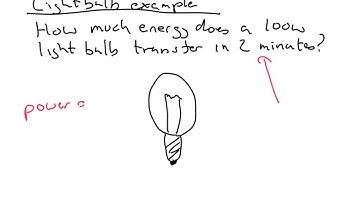 Lightbulb example
How much energy does a 100w
light bulb transfer in 2 minutes?
power =